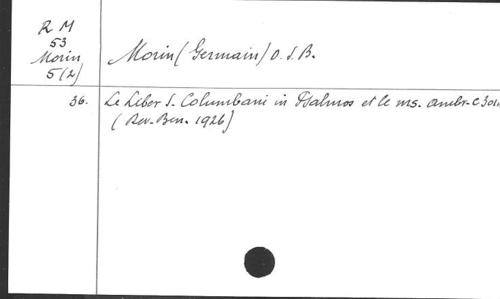 R M
53
Morin
5(2)
Morin (Germain) O.S.B.
36. Le Liber S. Columbani in Psalmos et le ms. Ambr. C 301
(Rev. Ben. 1926)